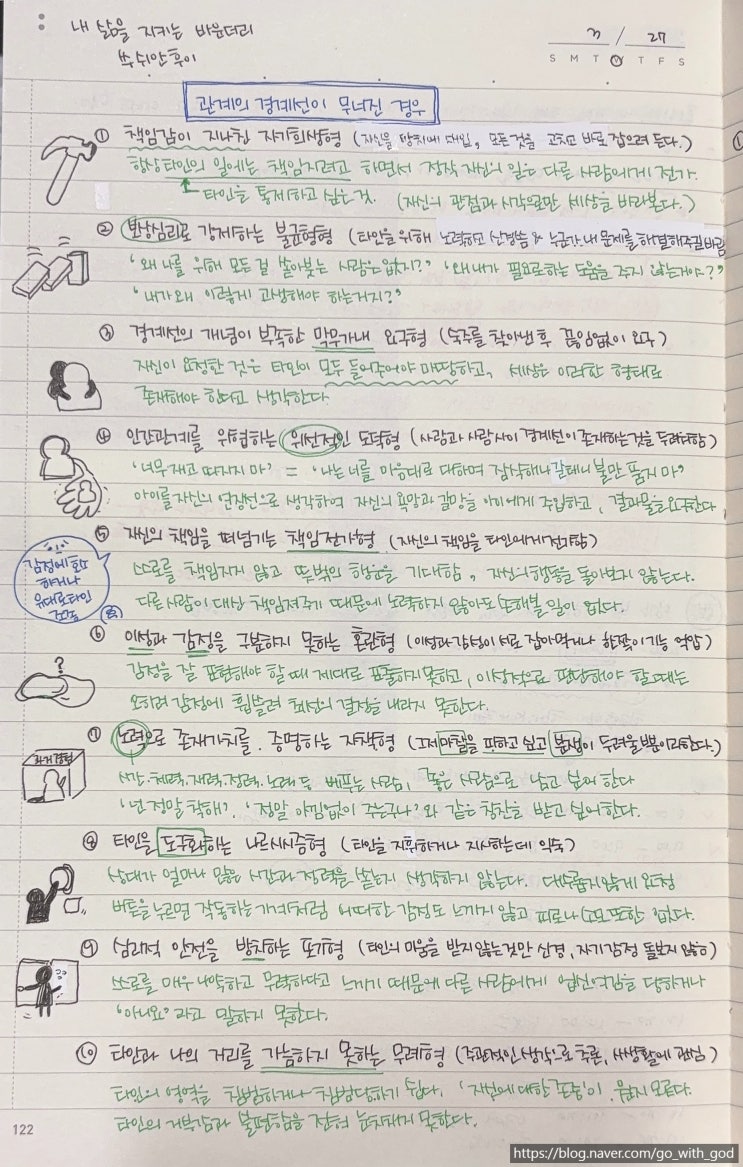 내 삶을 지키는 바운더리
쑤쉬안후이
11 / 27
S M T W T F S
관계의 경계선이 무너진 경우
① 책임감이 지나친 자기희생형 (자신을 망치에 대입, 모든것을 고치고 바로 잡으려 든다.)
항상 타인의 일에는 책임지려고 하면서 정작 자신의 일은 다른 사람에게 전가.
타인을 통제하고 싶은 것. (자신의 관점과 시각으로만 세상을 바라본다.)
② 보상심리로 강제하는 불균형형 (타인을 위해 노력하고 신경씀 & 누군가 내 문제를 해결해주길 바람
'왜 나를 위해 모든 걸 쏟아붓는 사람은 없지?' '왜 내가 필요로하는 도움을 주지 않는거야?'
'내가 왜 이렇게 고생해야 하는거지?'
③ 경계선의 개념이 부족한 막무가내 요구형 (숙주를 찾아낸 후 끊임없이 요구)
자신이 요청한 것은 타인이 모두 들어주어야 마땅하고, 세상은 이러한 형태로
존재해야 한다고 생각한다.
④ 인간관계를 위협하는 위선적인 도덕형 (사람과 사람사이 경계선이 존재하는 것을 두려워함)
'너무 재고 따지지 마' = '나는 너를 마음대로 대하며 잠식해나갈테니 불만 품지 마'
아이를 자신의 연장선으로 생각하여 자신의 욕망과 갈망을 아이에게 주입하고, 결과물을 요구한다
⑤ 자신의 책임을 떠넘기는 책임전가형 (자신의 책임을 타인에게 전가함)
스스로를 책임지지 않고 뜻밖의 행운을 기대함, 자신의 행동을 돌아보지 않는다.
다른 사람이 대신 책임져주기 때문에 노력하지 않아도 손해볼 일이 없다.
감정에 호소
하거나
유대로 타인
조종
⑥ 이성과 감정을 구분하지 못하는 혼란형 (이성과 감성이 서로 잡아먹거나 한쪽이 기능 억압)
감정을 잘 표현해야 할 때 제대로 표출하지 못하고, 이성적으로 판단해야 할 때는
오히려 감정에 휩쓸려 최선의 결정을 내리지 못한다.
⑦ 노력으로 존재가치를 증명하는 자책형 (그저 마찰을 피하고 싶고 분쟁이 두려울 뿐이라한다.)
과거경험
시간·체력·재력·정력·노래 등 베푸는 사람, 좋은 사람으로 남고 싶어 한다
'넌 정말 착해', '정말 아낌없이 주는구나'와 같은 칭찬을 받고 싶어한다.
⑧ 타인을 도구화하는 나르시시즘형 (타인을 지휘하거나 지시하는데 익숙)
상대가 얼마나 많은 시간과 정력을 쏟는지 생각하지 않는다. 대수롭지않게 요청
버튼을 누르면 작동하는 기계처럼 어떠한 감정도 느끼지 않고 피로나 고또한 없다.
⑨ 심리적 안전을 방치하는 포기형 (타인의 미움을 받지 않는것만 신경, 자기감정 돌보지 않음)
스스로를 매우 나약하고 무력하다고 느끼기 때문에 다른 사람에게 업신여김을 당하거나
'아니요'라고 말하지 못한다.
⑩ 타인과 나의 거리를 가늠하지 못하는 무례형 (주관적인 생각으로 추론, 사생활에 관심)
타인의 영역을 침범하거나 침범당하기 쉽다. '자신에 대한 존중'이 뭔지 모른다.
타인의 거부감과 불편함을 전혀 눈치채지 못한다.
122
https://blog.naver.com/go_with_god